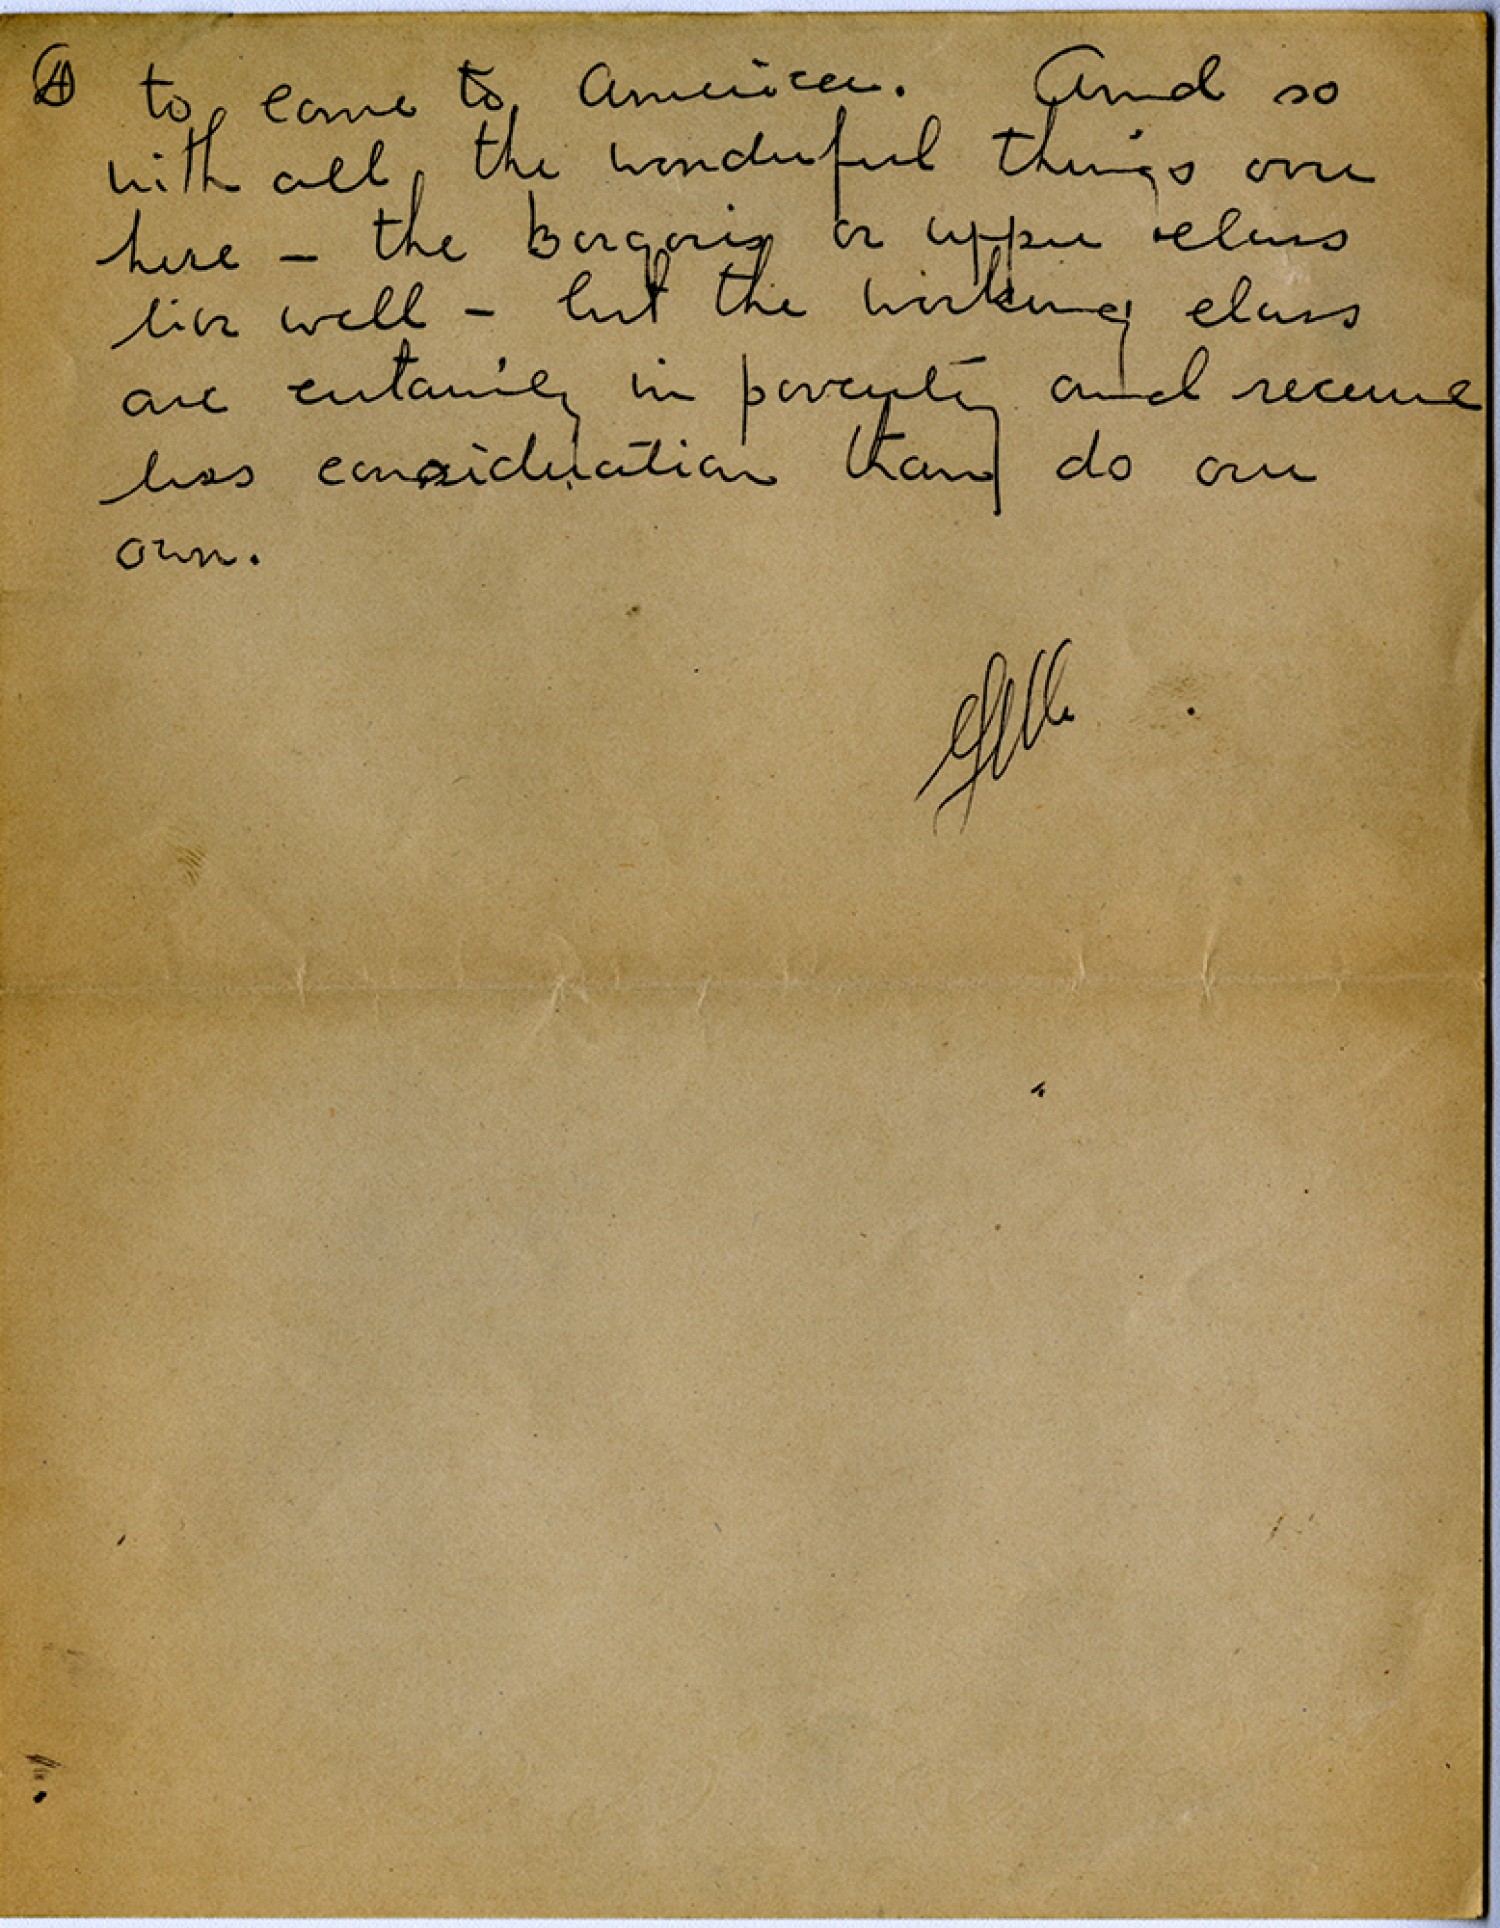 ④ to come to America. And so
with all the wonderful things over
here – the Borgois or upper class
live well – but the working class
are certainly in poverty and receive
less consideration than do our
own.